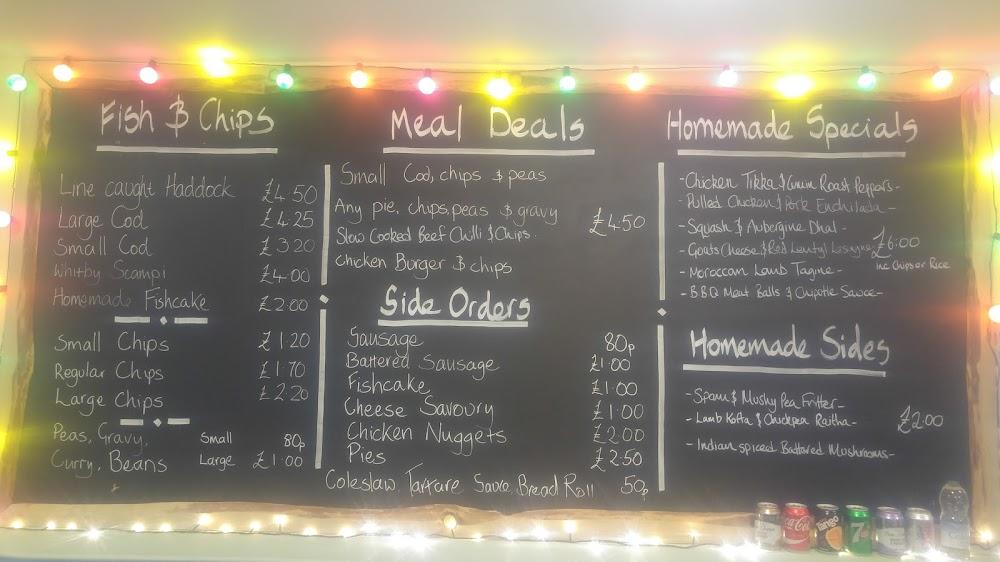 Fish & Chips
Line caught Haddock £4.50
Large Cod £4.25
Small Cod £3.20
Whitby Scampi £4.00
Homemade Fishcake £2.00
Small Chips £1.20
Regular Chips £1.70
Large Chips £2.20
Peas, Gravy, Small 80p
Curry, Beans Large £1.00
Meal Deals
Small Cod, chips & peas
Any pie, chips, peas & gravy £4.50
Slow Cooked Beef Chilli & Chips.
Chicken Burger & chips
Side Orders
Sausage 80p
Battered Sausage £1.00
Fishcake £1.00
Cheese Savoury £1.00
Chicken Nuggets £2.00
Pies £2.50
Coleslaw, Tartare Sauce, Bread Roll 50p
Homemade Specials
- Chicken Tikka & Roast Peppers -
- Pulled Chicken & Pork Enchilada -
- Squash & Aubergine Dhal -
- Goats Cheese & Red Lentyl Lasagne £6.00
- Moroccan Lamb Tagine - inc Chips or Rice
- BBQ Meat Balls & Chipotle Sauce -
Homemade Sides
- Spam & Mushy Pea Fritter -
- Lamb Kofta & Chickpea Raitha - £2.00
- Indian spiced Battered Mushrooms -
Coca-Cola
Tango
7